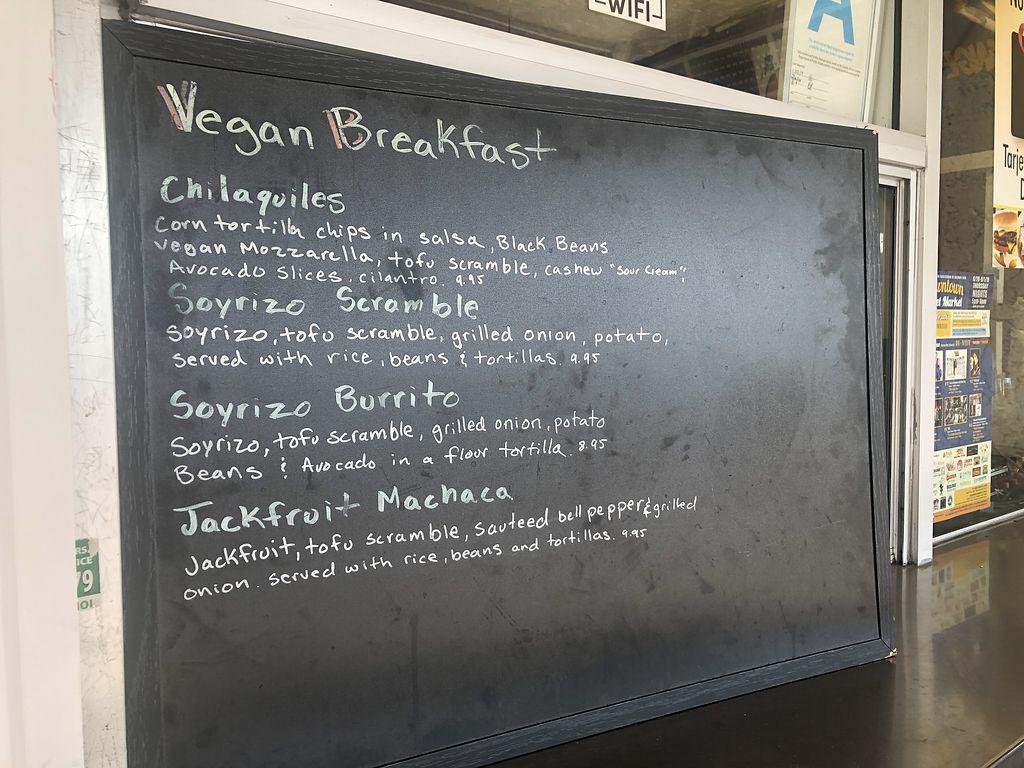 WIFI
A
Vegan Breakfast
Chilaquiles
Corn tortilla chips in salsa, Black Beans
Vegan Mozzarella, tofu scramble, cashew "Sour Cream",
Avocado Slices, cilantro. 9.95
Soyrizo Scramble
Soyrizo, tofu scramble, grilled onion, potato,
Served with rice, beans & tortillas. 9.95
Soyrizo Burrito
Soyrizo, tofu scramble, grilled onion, potato
Beans & Avocado in a flour tortilla. 8.95
Jackfruit Machaca
Jackfruit, tofu scramble, Sauteed bell pepper & grilled
onion. Served with rice, beans and tortillas. 9.95
Tarje
79